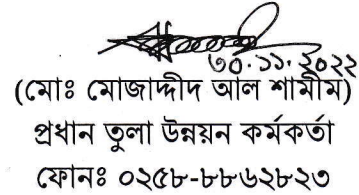 ৩০.১১.২০২২
(মোঃ মোজাদ্দীদ আল শামীম)
প্রধান তুলা উন্নয়ন কর্মকর্তা
ফোনঃ ০২৫৮-৮৮৬২৮২৩